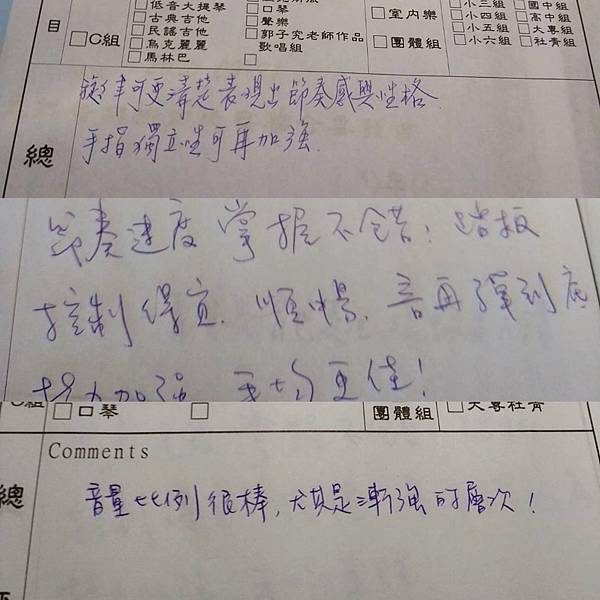 低音大提琴
口琴
室內樂
小三組
國中組
目
古典吉他
聲樂
小四組
高中組
C組
民謠吉他
郭子究老師作品
團體組
小五組
大專組
烏克麗麗
歌唱組
小六組
社青組
馬林巴
總
旋律可更清楚表現出節奏感與性格.
手指獨立性可再加強.
節奏速度掌握不錯;踏板
控制得宜.順暢.音再彈到底
加強 平均更佳!
C組
口琴
團體組
大專社青
Comments
總
音量比例很棒,尤其是漸強的層次!